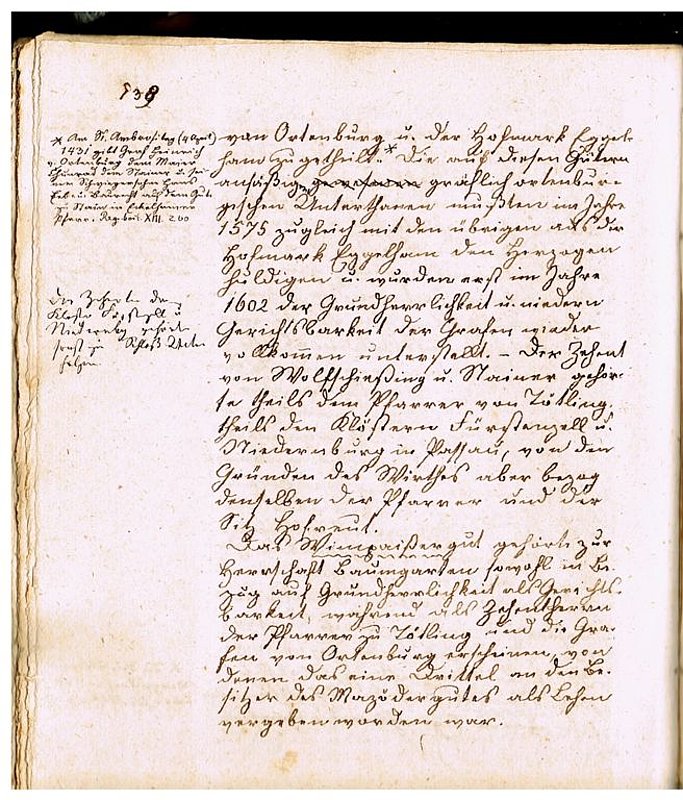 138
* Am St. Ambrositag (4 April)
1431 gibt Graf Heinrich
v. Ortenburg dem Maier
Chunrad dem Stainer u. sei-
nem Schwigersohn Hanns
Erb- u. Baurecht auf dem Gut
zu Stain in Eckelhaimer
Pfarr. Reg. boic. XIII. 200
der Zehent den
Klöster Fürstenzell u
Niedernbg gehörte
sonst zu Schloß
von Ortenburg u. der Hofmark Eggel-
ham zugetheilt.* Die auf diesen Gütern
ansäßig gewesenen gräflich ortenburi-
gischen Unterthanen mußten im Jahre
1575 zugleich mit den übrigen aus der
Hofmark Eggelham den Herzogen
huldigen u. wurden erst im Jahre
1602 der Grundherrlichkeit u. niedern
Gerichtsbarkeit der Grafen wieder
vollkommen unterstellt. – Der Zehent
von Wolfschießing u. Stainer gehör-
te theils dem Pfarrer von Tötling,
theils den Klöstern Fürstenzell u.
Niedernburg in Passau, von den
Gründen des Wirthes aber bezog
denselben der Pfarrer und der
Sitz Hofreut.
Das Wimpaißergut gehörte zur
Herrschaft Baumgarten sowohl in Be-
zug auf Grundherrlichkeit als Gerichts-
barkeit, während als Zehentherrn
der Pfarrer zu Tötling und die Gra-
fen von Ortenburg erscheinen, von
denen das eine Drittel an den Be-
sitzer des Mazödergutes als Lehen
vergeben worden war.